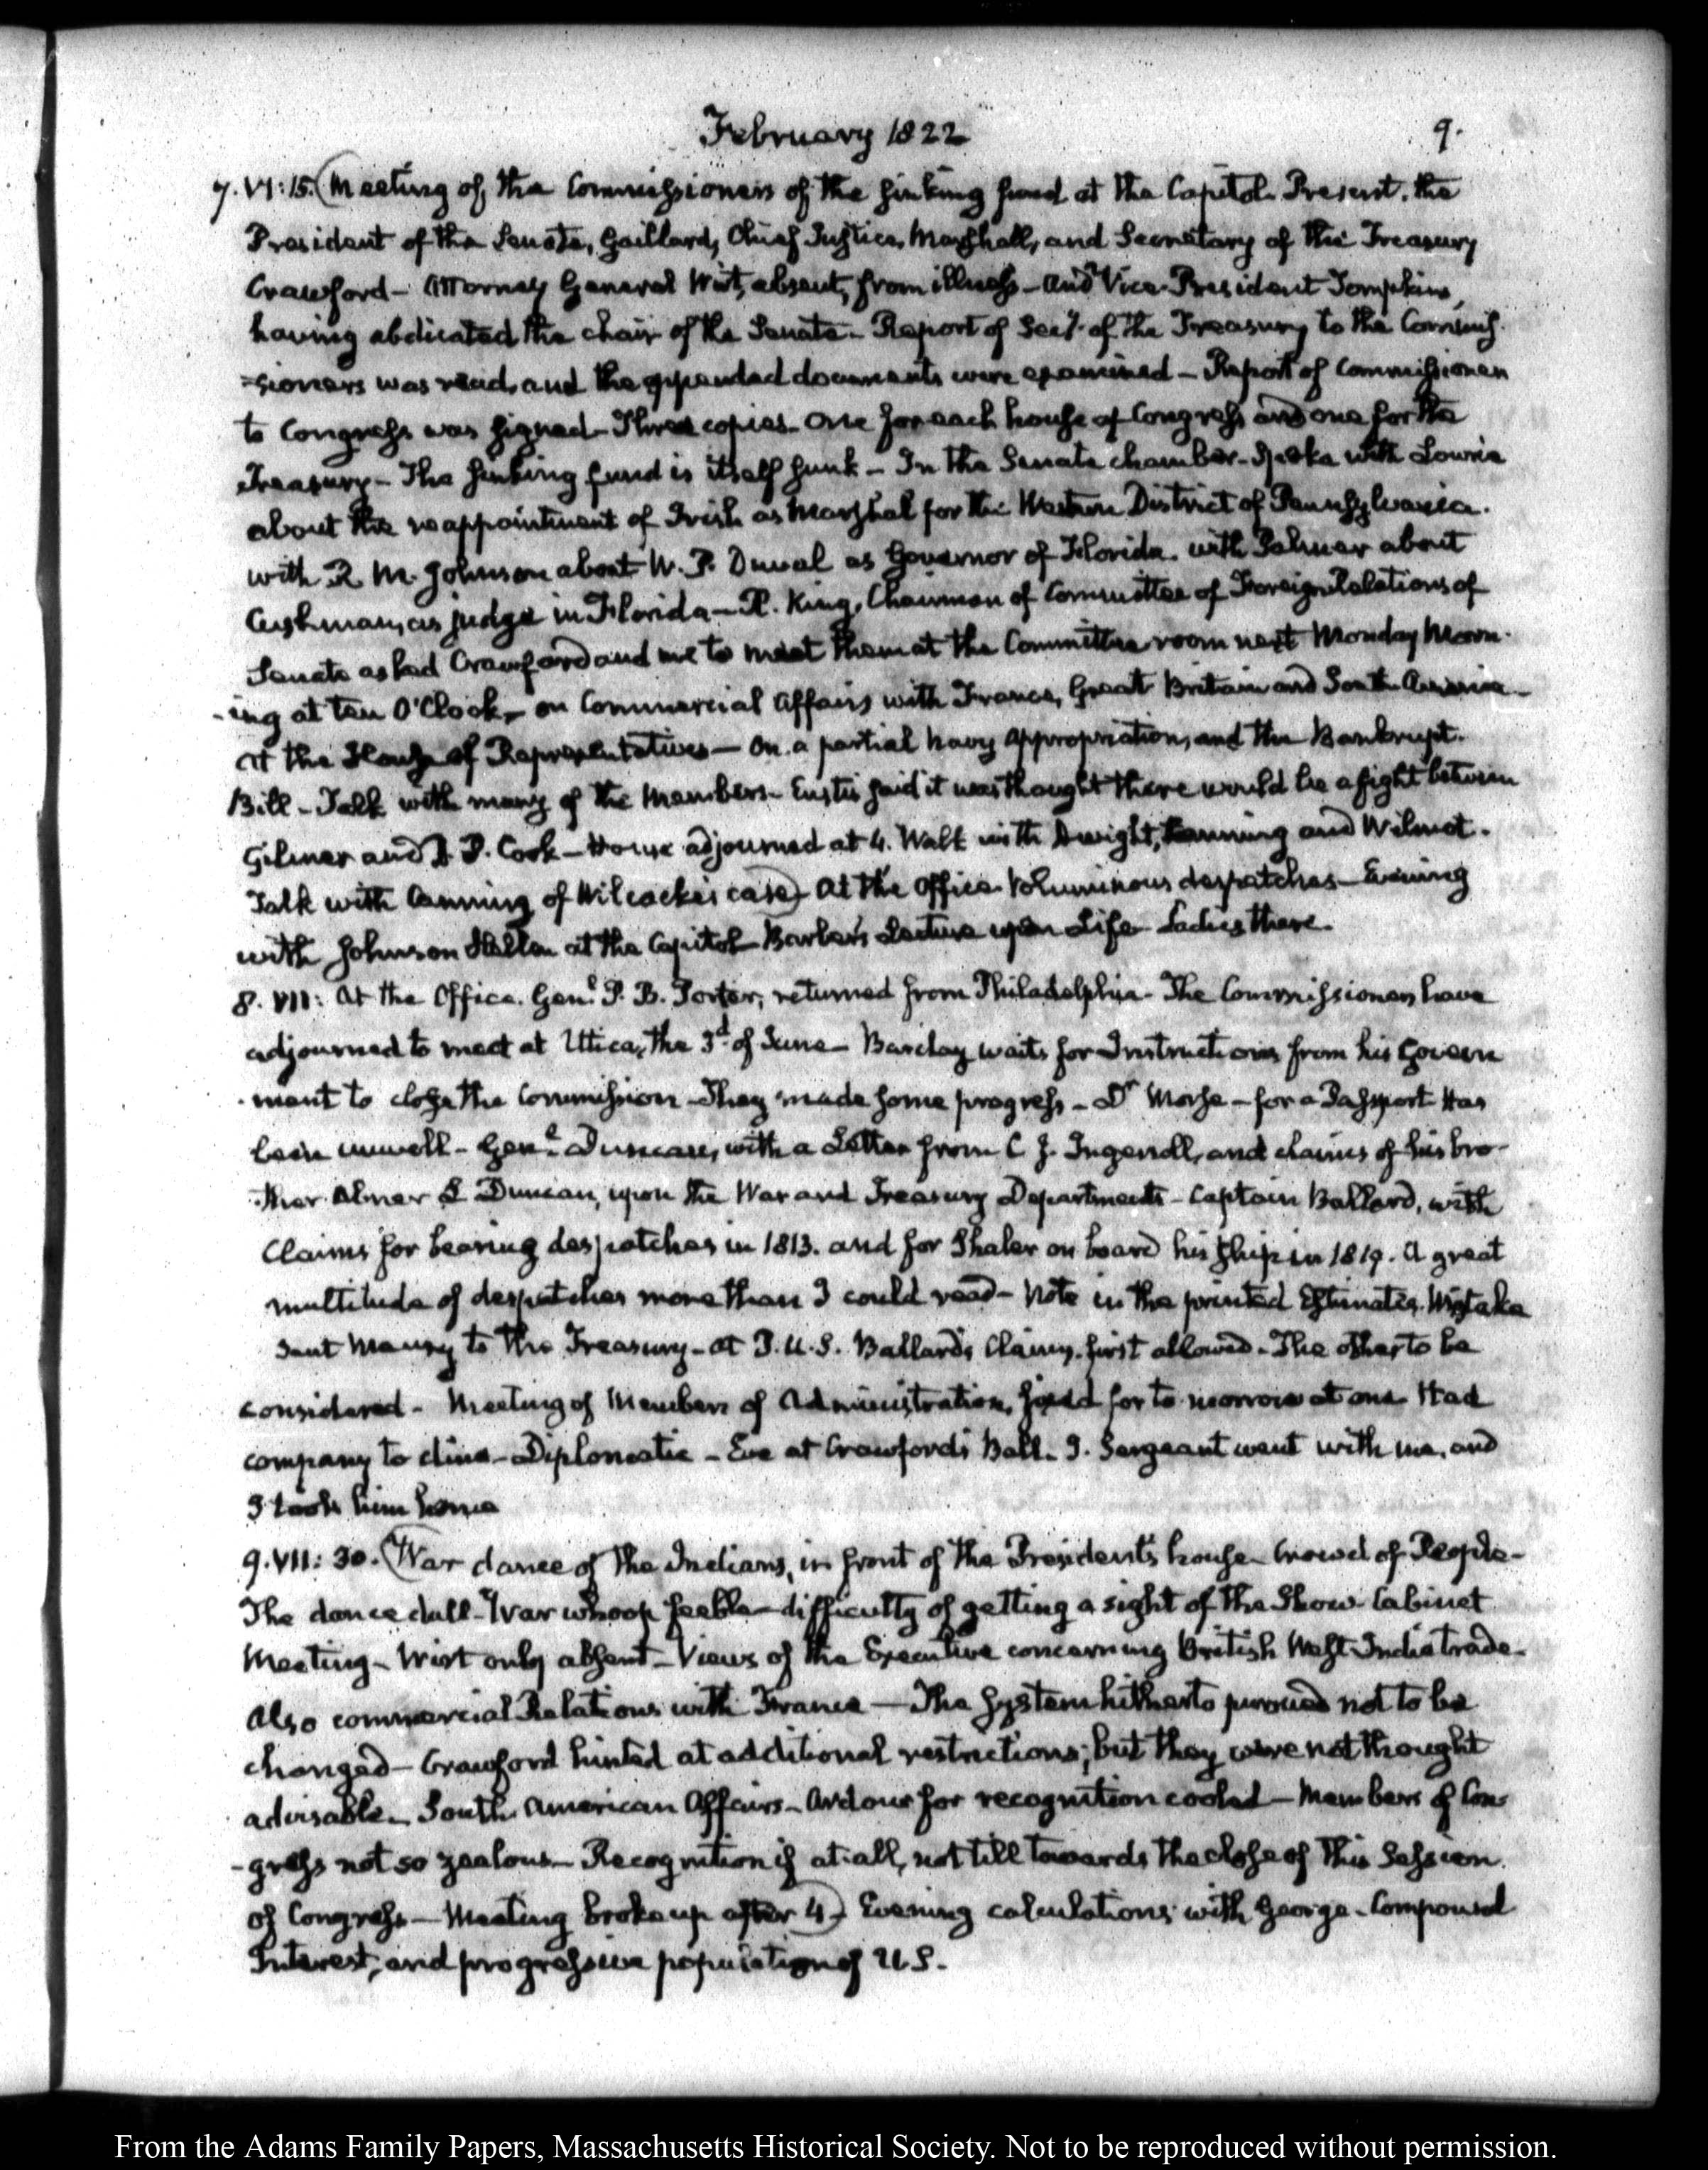 February 1822
9.
7. VI:15. (Meeting of the Commissioners of the sinking fund at the Capitol. Present. the
President of the Senate, Gaillard, Chief Justice, Marshall, and Secretary of the Treasury
Crawford — Attorney General Wirt, absent, from illness — and Vice-President Tompkins,
having abdicated the chair of the Senate — Report of Secy. of the Treasury to the Commis-
-sioners was read, and the appended documents were examined — Report of Commissioners
to Congress was signed — Three copies. One for each house of Congress and one for the
Treasury — The sinking fund is itself sunk — In the Senate chamber — Spoke with Lowrie
about the reappointment of Irish as Marshal for the Western District of Pennsylvania.
with R. M. Johnson about W. P. Duval as Governor of Florida. with Palmer about
Cushman, as judge in Florida — R. King, Chairman of Committee of Foreign Relations of
Senate asked Crawford and me to meet them at the Committee room next Monday Morn-
-ing at ten O'Clock, — on Commercial Affairs with France, Great Britain and South America —
At the House of Representatives — On a partial Navy Appropriation, and the Bankrupt.
Bill — Talk with many of the Members — Eustis said it was thought there would be a fight between
Gilmer and D. P. Cook — House adjourned at 4. Walk with Dwight, Canning and Wilmot.
Talk with Canning of Wilcocks's case) At the Office. Voluminous despatches — Evening
with Johnson Hellen at the Capitol — Barber's Lecture upon Life — Ladies there.
8. VII: At the Office. Genl. P. B. Porter, returned from Philadelphia — The Commissioners have
adjourned to meet at Utica, the 3d. of June — Barclay waits for Instructions from his Govern
-ment to close the Commission — They made some progress — Dr Morse — for a Passport Has
been unwell — Genl. Duncan, with a Letter from C J. Ingersoll, and claims of his bro-
-ther Abner L Duncan, upon the War and Treasury Departments — Captain Ballard, with
Claims for bearing despatches in 1813. and for Shaler on board his ship in 1819. A great
multitude of despatches more than I could read — Note in the printed Estimates. Mistake
Sent Maury to the Treasury — At P. U. S. Ballard's Claims. first allowed. The other to be
considered — Meeting of Members of Administration, fixed for to-morrow at one Had
company to dine — Diplomatic — Eve at Crawford's Ball. J. Sergeant went with me, and
I took him home
9. VII: 30. (War dance of the Indians, in front of the President's house — Crowd of People —
The dance dull — War whoop feeble — difficulty of getting a sight of the Show Cabinet
Meeting — Wirt only absent — Views of the Executive concerning British West-India trade —
Also commercial Relations with France — The System hitherto pursued not to be
changed — Crawford hinted at additional restrictions; but they were not thought
advisable — South American Affairs — Ardour for recognition cooled — Members of Con
-gress not so zealous — Recognition if at all, not till towards the close of this Session
of Congress — Meeting broke up after 4.) Evening calculations with George. Compound
Interest, and progressive population of U.S.
From the Adams Family Papers, Massachusetts Historical Society. Not to be reproduced without permission.